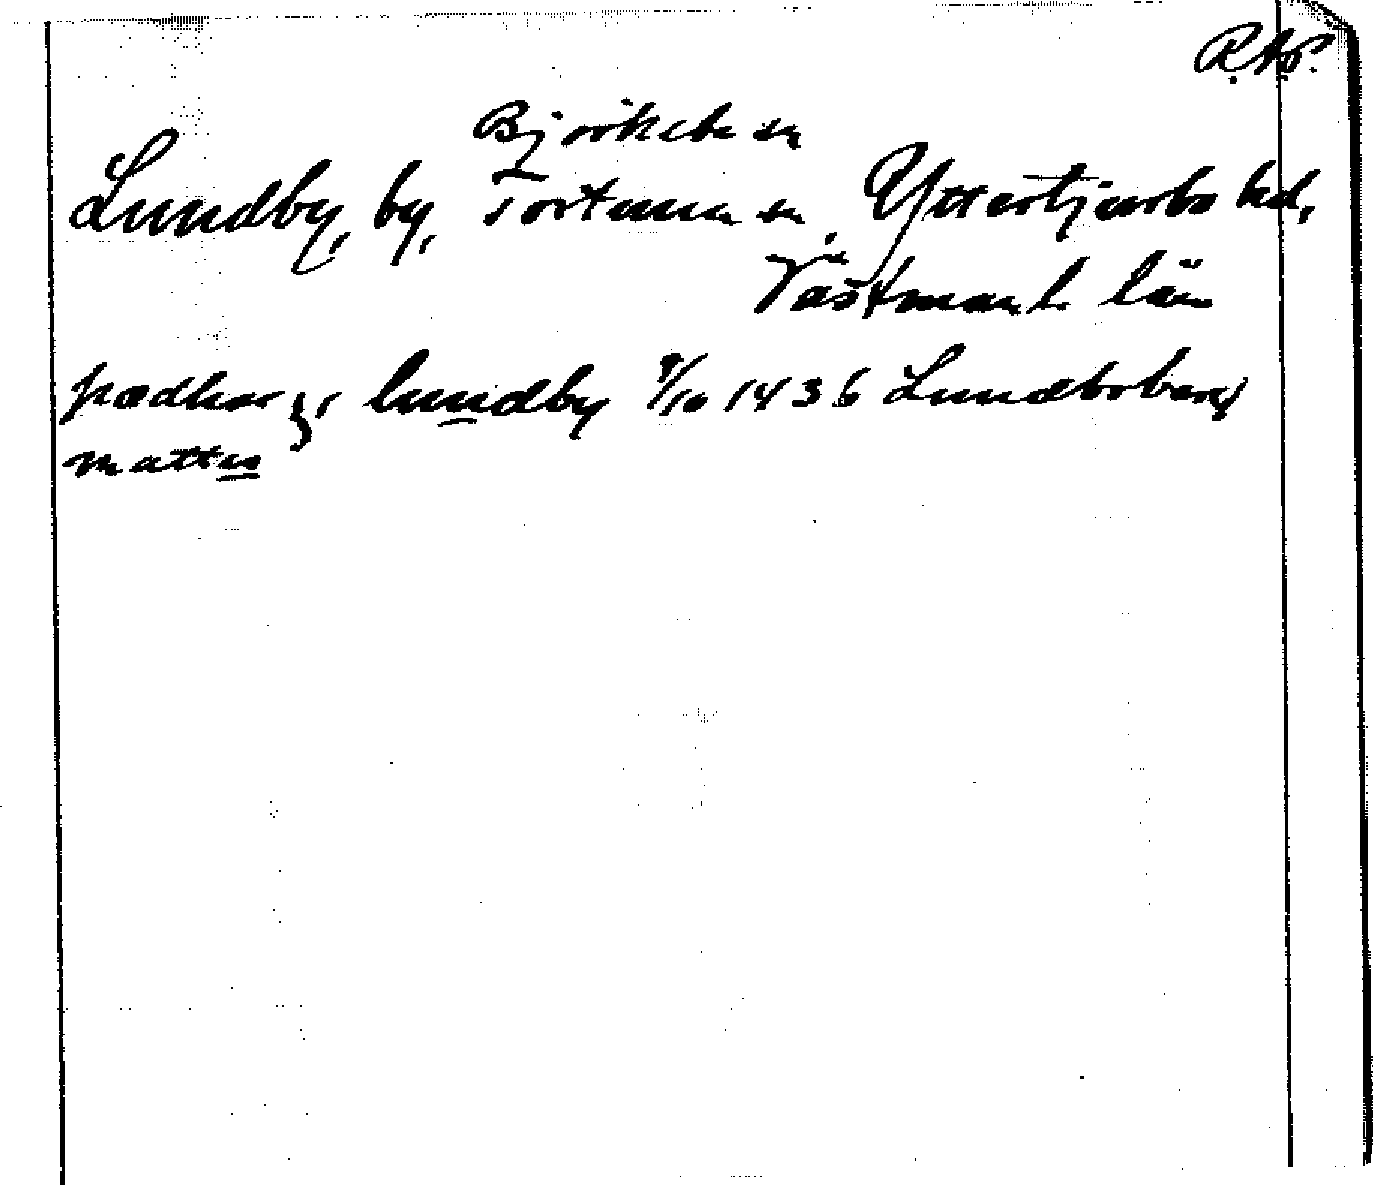 R.Ap.
Björksta sn
Lundby, by, Tortuna sn, Yttertjurbo hd,
Västmanl. län
pædhar } i lundby 9/10 1436 Lundboberg
mattis